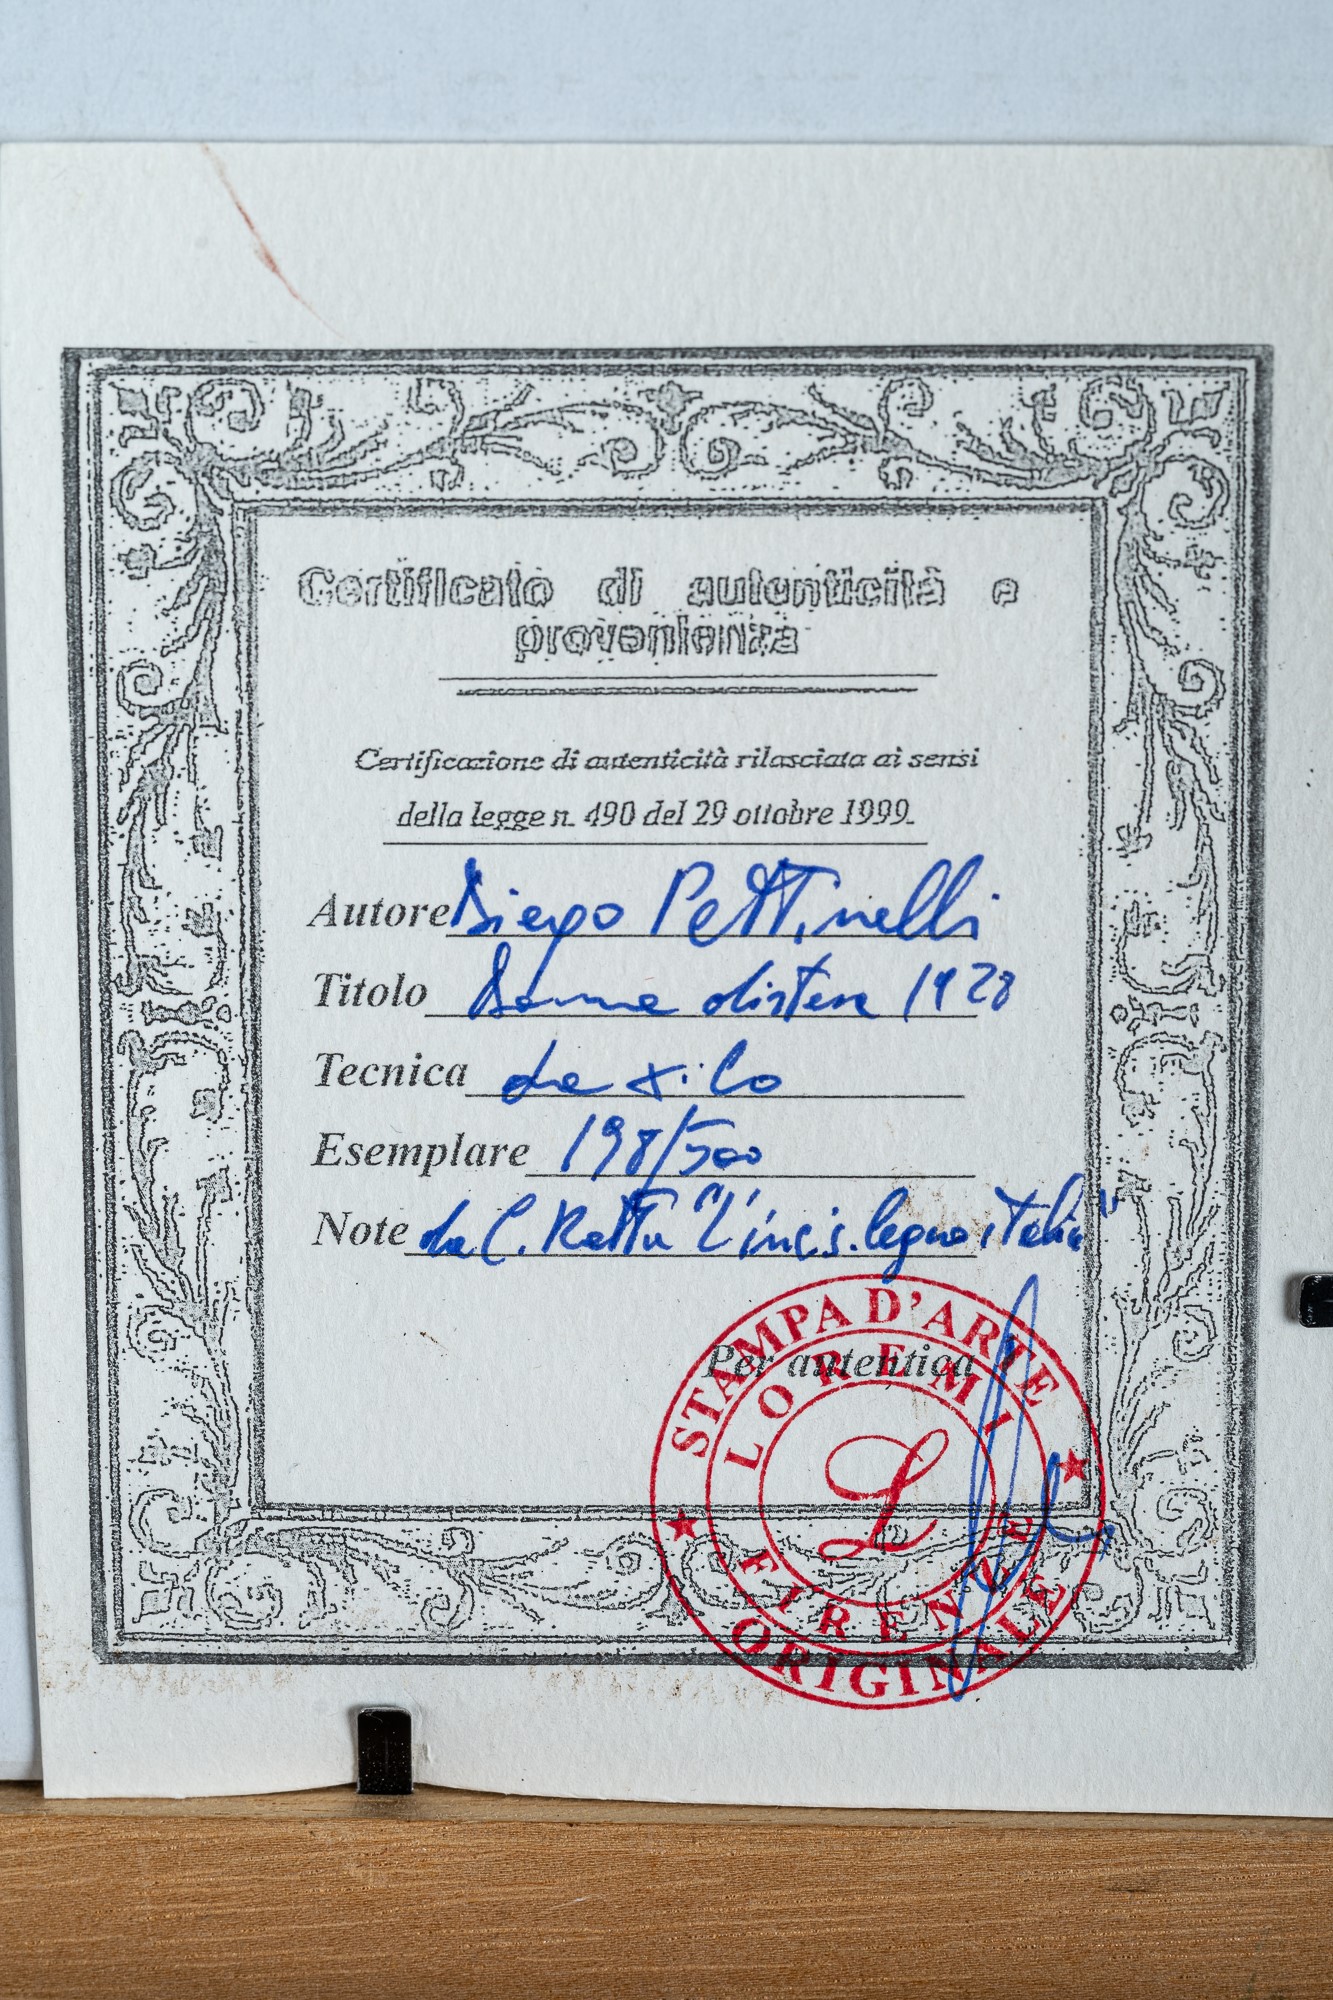 Certificato di autenticità e
provenienza
Certificazione di autenticità rilasciata ai sensi
della legge n. 490 del 29 ottobre 1999.
Autore Diego Pettinelli
Titolo Donna distesa 1928
Tecnica da xilo
Esemplare 198/500
Note da C. Ratta "L'incis. legno italia"
Per autentica
STAMPA D'ARTE
LOREMI
L
FIRENZE
ORIGINALE